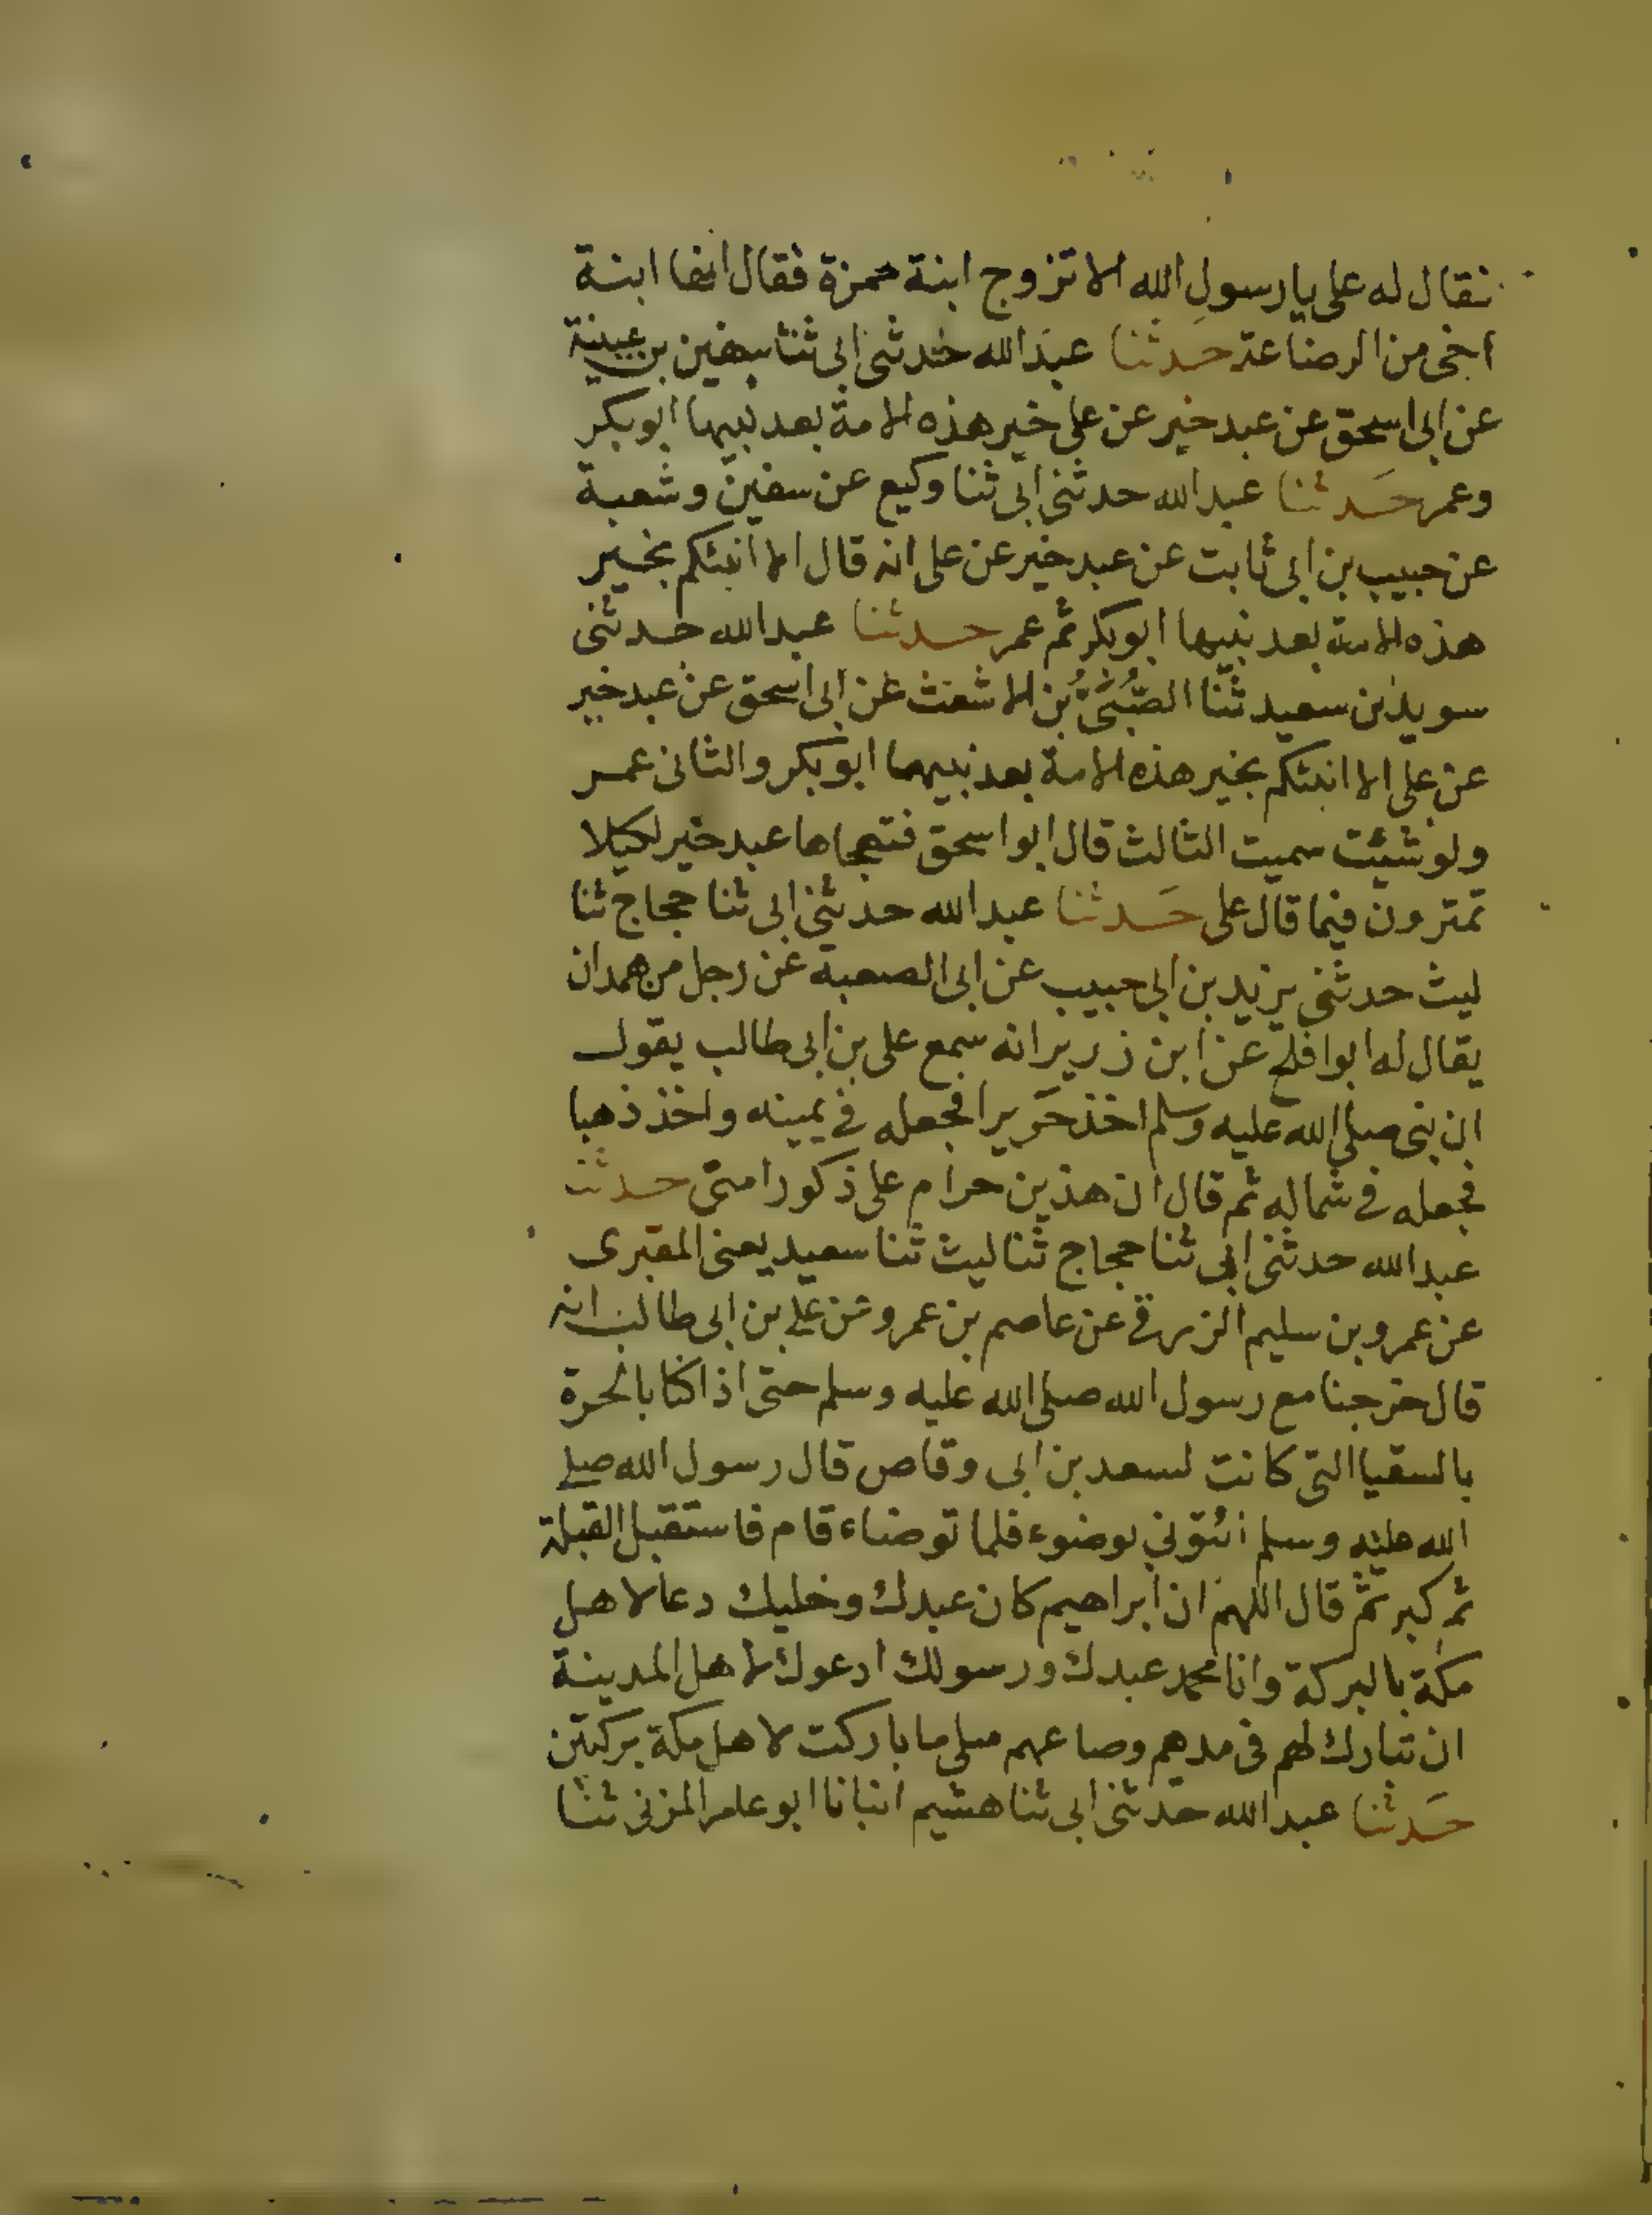 فقال له على يا رسول الله الا تزوج ابنة حمزة فقال انها ابنة
اخى من الرضاعة حدثنا عبد الله حدثنى ابى ثنا سفين بن عيينة
عن ابى اسحق عن عبد خير عن على خير هذه الامة بعد نبيها ابو بكر
وعمر حدثنا عبد الله حدثنى ابى ثنا وكيع عن سفين وشعبة
عن حبيب بن ابى ثابت عن عبد خير عن على انه قال الا انبئكم بخير
هذه الامة بعد نبيها ابو بكر ثم عمر حدثنا عبد الله حدثنى
سويد بن سعيد ثنا الصُّبَىُّ بن الاشعث عن ابى اسحق عن عبد خير
عن على الا انبئكم بخير هذه الامة بعد نبيها ابو بكر والثانى عمر
ولو شئت سميت الثالث قال ابو اسحق فتهجاها عبد خير لكيلا
تمترون فيما قال على حدثنا عبد الله حدثنى ابى ثنا حجاج ثنا
ليث حدثنى يزيد بن ابى حبيب عن ابى الصعبة عن رجل من همدان
يقال له ابو افلح عن ابن زرير انه سمع على بن ابى طالب يقول
ان نبى صلى الله عليه وسلم اخذ حريرا فجعله فى يمينه واخذ ذهبا
فجعله فى شماله ثم قال ان هذين حرام على ذكور امتى حدثنا
عبد الله حدثنى ابى ثنا حجاج ثنا ليث ثنا سعيد يعنى المقبرى
عن عمرو بن سليم الزرقى عن عاصم بن عمرو عن على بن ابى طالب انه
قال خرجنا مع رسول الله صلى الله عليه وسلم حتى اذا كنا بالحرة
بالسقيا التى كانت لسعد بن ابى وقاص قال رسول الله صلى
الله عليه وسلم ائتونى بوضوء فلما توضاء قام فاستقبل القبلة
ثم كبر ثم قال اللهم ان ابراهيم كان عبدك وخليك دعا لاهل
مكة بالبركة وانا محمد عبدك ورسولك ادعوك لاهل المدينة
ان تبارك لهم فى مدهم وصاعهم مثلى ما باركت لاهل مكة بركتين
حدثنا عبد الله حدثنى ابى ثنا هشيم انبانا ابو عامر المزنى ثنا